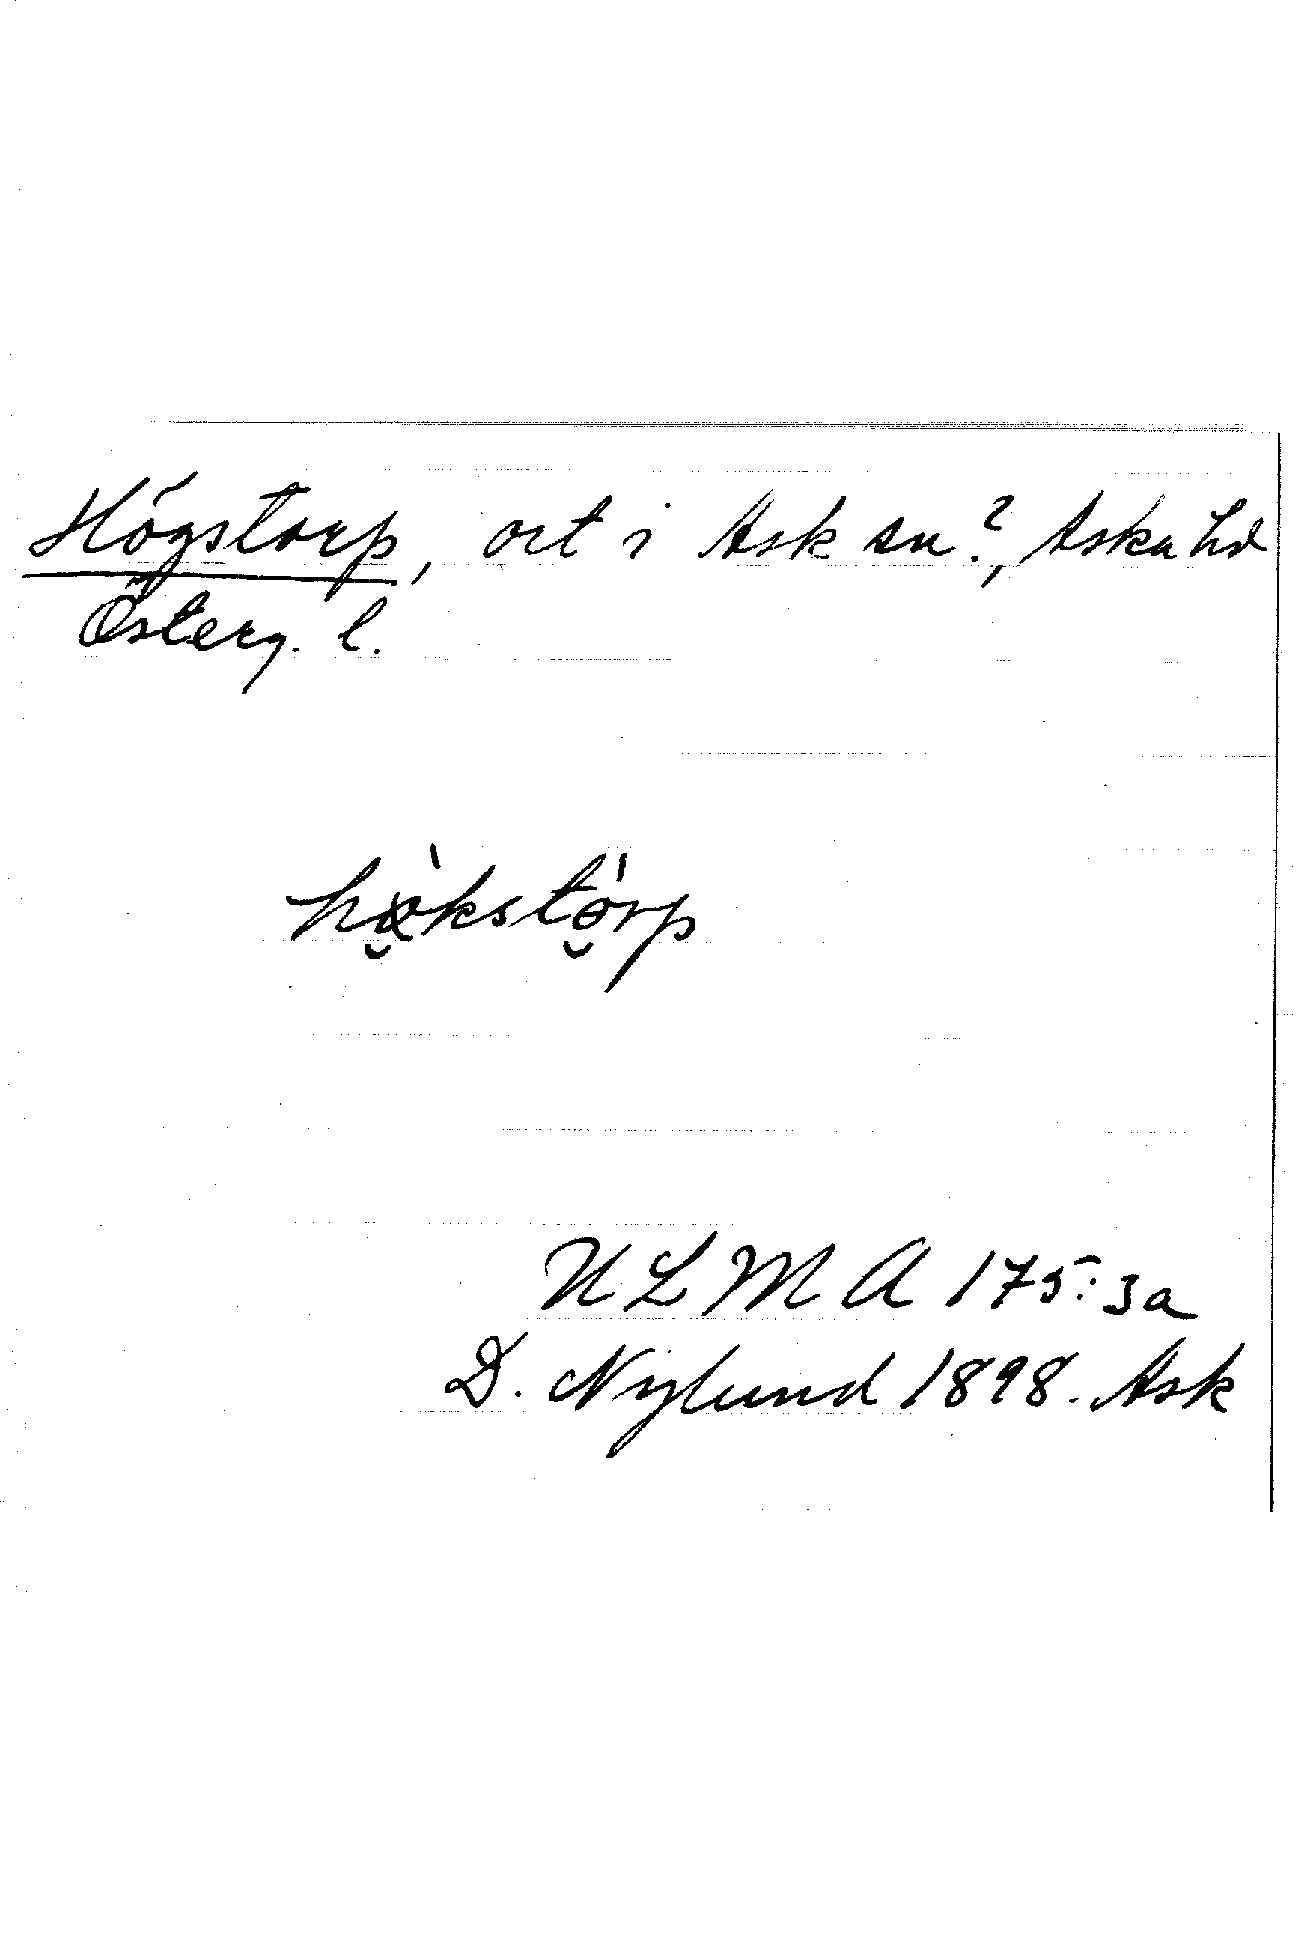 Högstorp, ort i Ask sn?, Aska hd
Österg. l.
hø̀kstȯrp
ULMA 175:3a
D. Nylund 1898. Ask